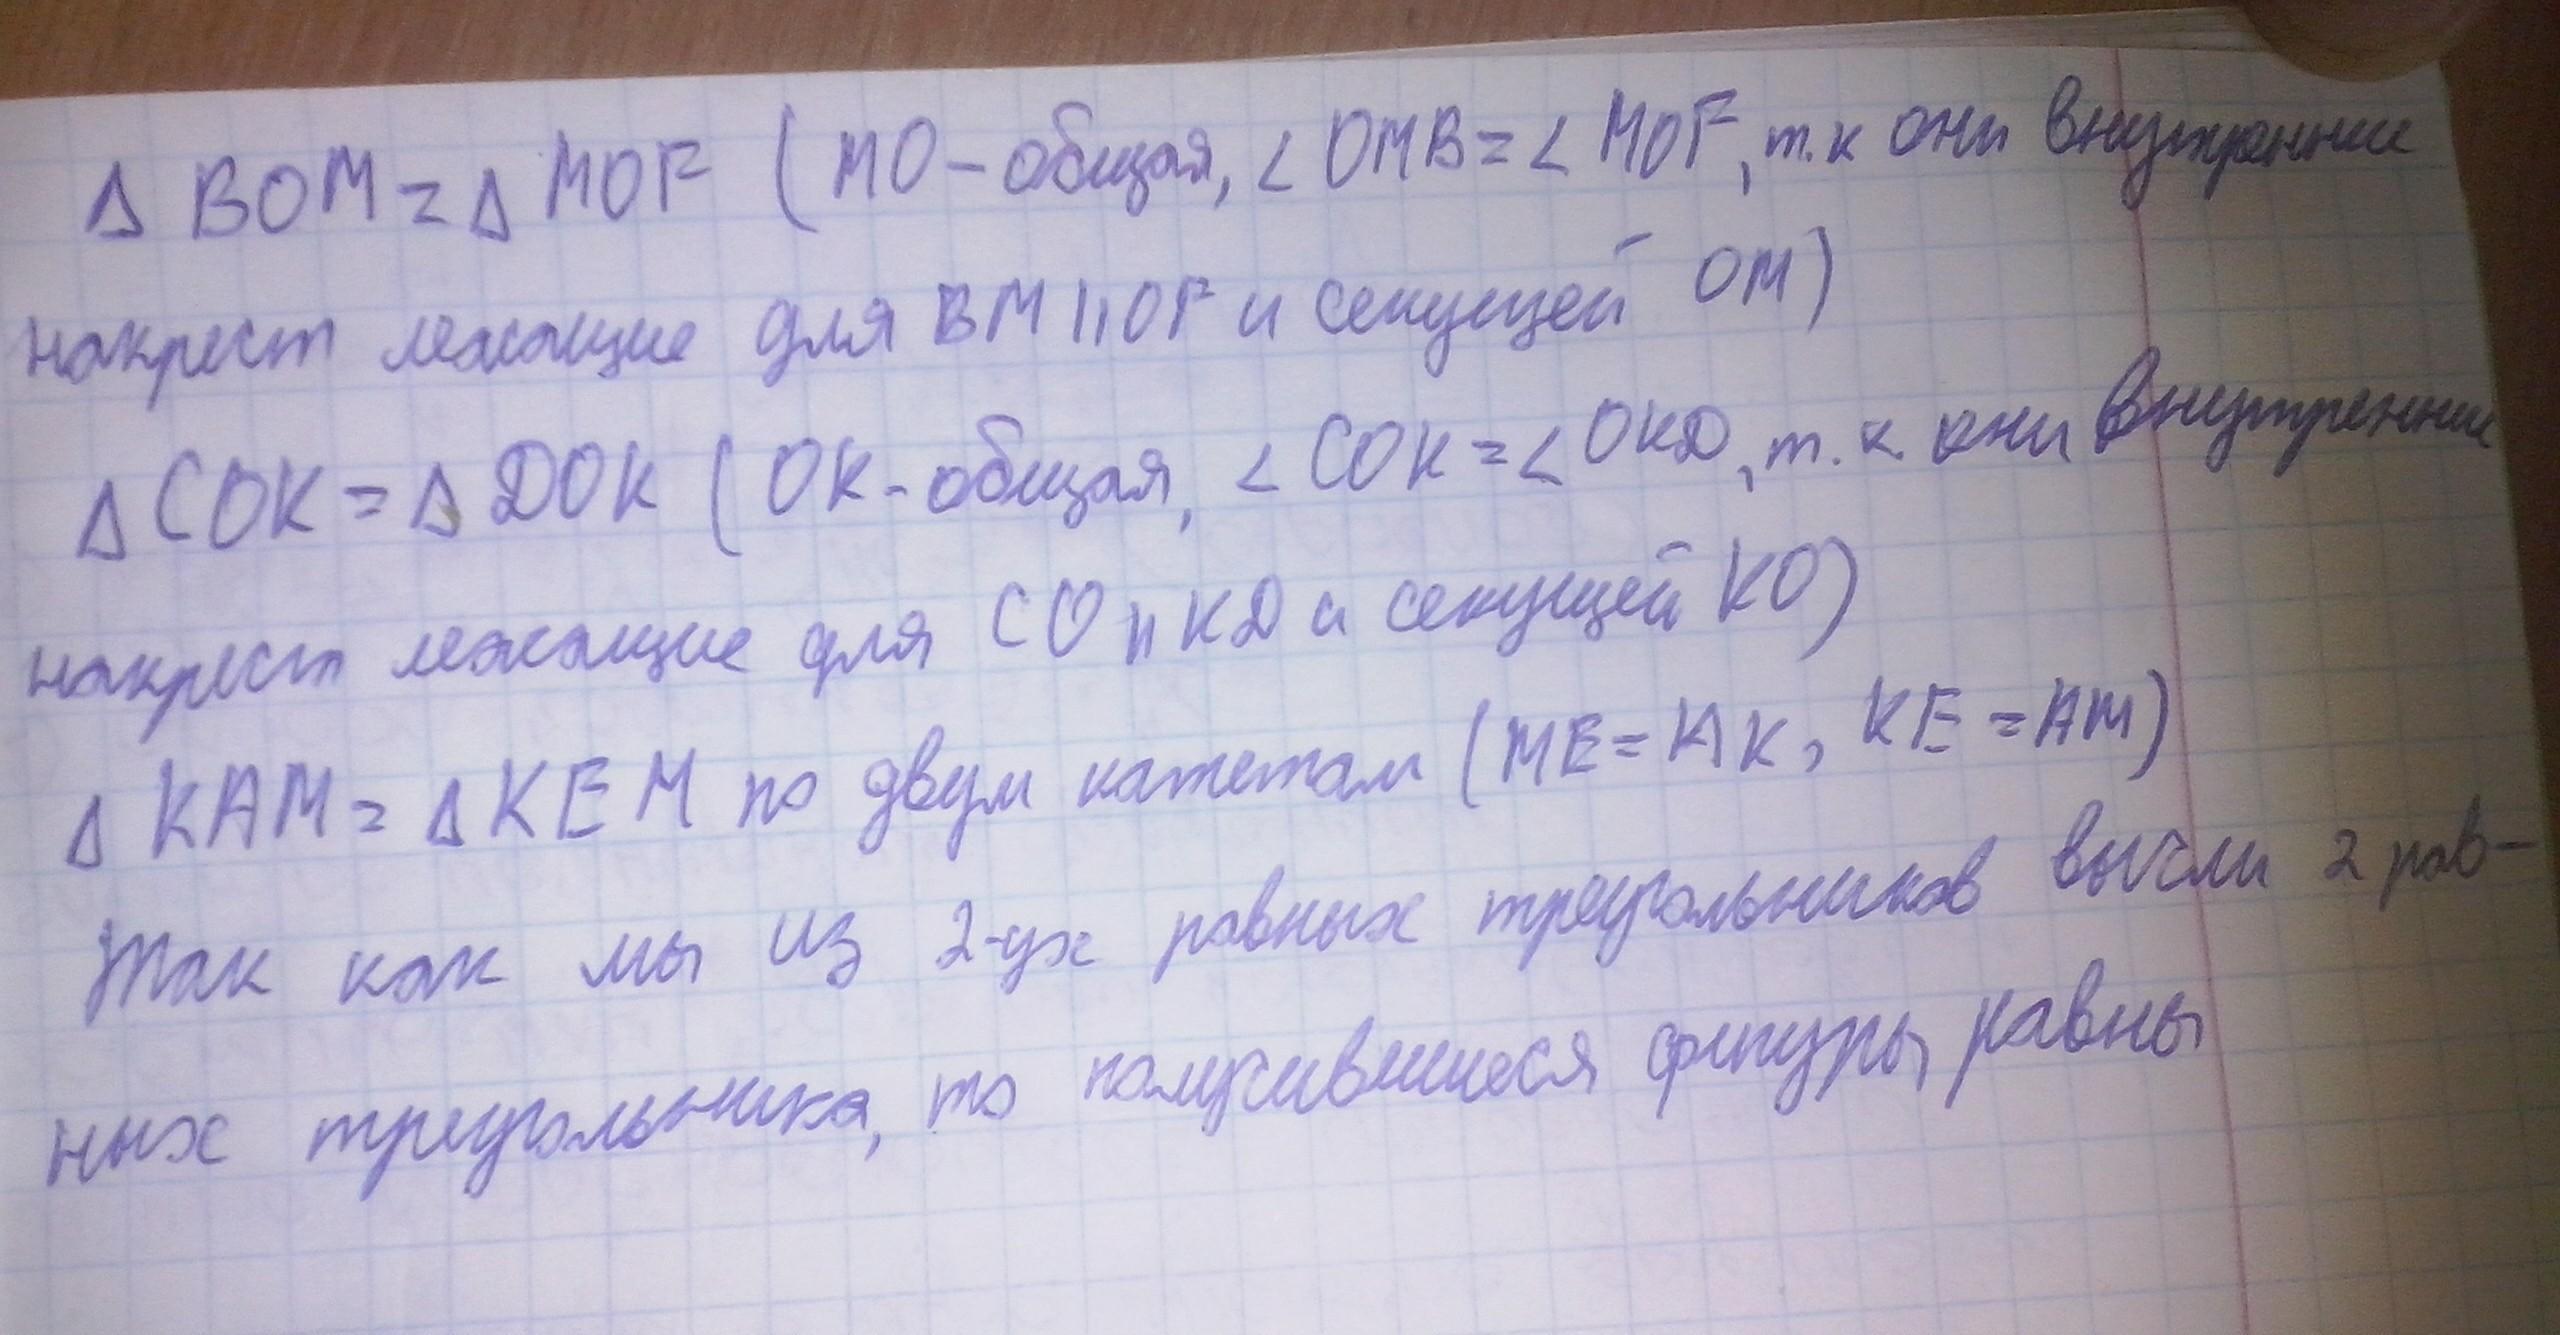 Δ BOM = Δ MOF (MO - общая, < OMB = < MOF, т.к они внутренние
накрест лежащие для BM || OF и секущей OM)
Δ COK = Δ DOK (OK - общая, < COK = < OKD, т.к. они внутренние
накрест лежащие для CO || KD и секущей KO)
Δ KAM = Δ KEM по двум катетам (ME = AK, KE = AM)
Так как мы из 2-ух равных треугольников вычли 2 рав-
ных треугольника, то получившиеся фигуры равны